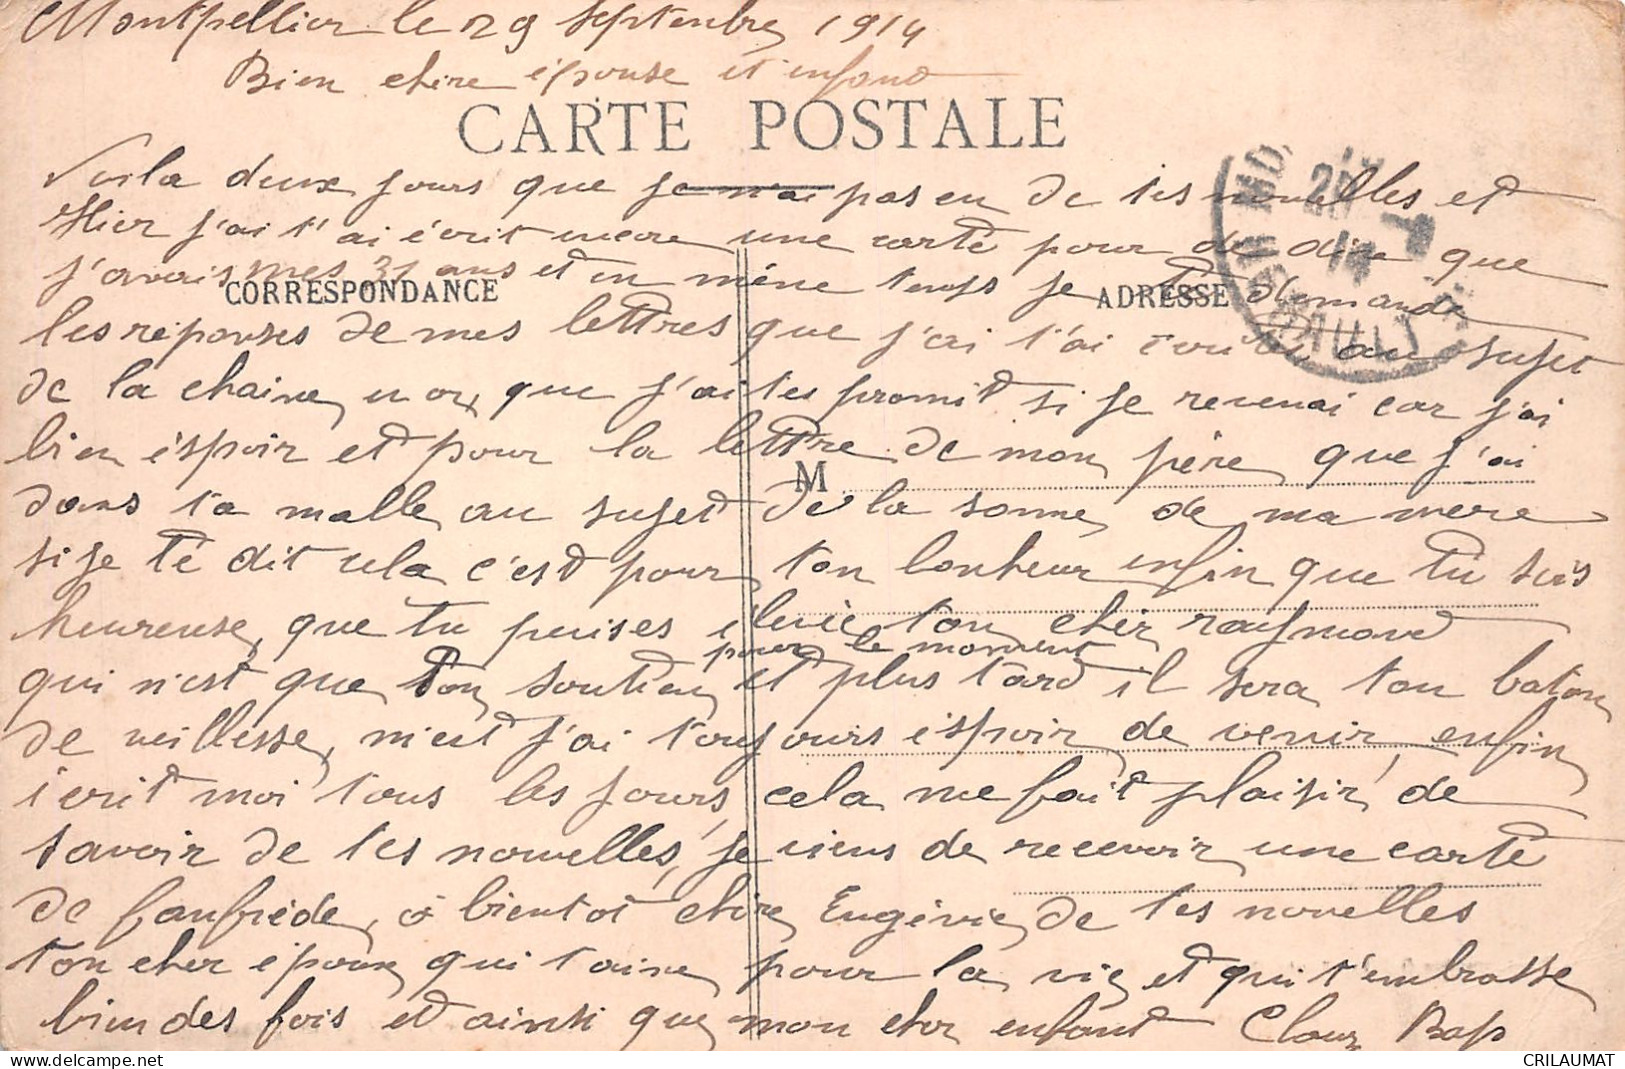 Montpellier le 29 Septenbre 1914
Bien chère épouse et enfant
CARTE POSTALE
Voila deux jours que je n'ai pas eu de tes nouvelles et
Hier j'ai t'ai écrit encore une carte pour de dire que
j'avais mes 31 ans et en mème temps je te demande
CORRESPONDANCE ADRESSE
les réponses de mes lettres que j'ai t'ai écrites au sujet
de la chaine en or, que j'ai tes promit si je revenai car j'ai
bien éspoir et pour la lettre de mon père que j'ai
M
dans ta malle au sujet de la somme de ma mere
si je te dit cela c'est pour ton bonheur enfin que tu sois
heureuse, que tu puises élevé ton cher raymond
pour le moment
qui n'est que ton soutien et plus tard il sera ton baton
de veillesse, m'est j'ai toujours éspoir de venir, enfin
écrit moi tous les jours, cela me fait plaisir, de
savoir de tes nouvelles, je viens de recevoir une carte
de fonfrède, à bientot chère Eugénie de tes nouvelles
ton cher époux qui t'aime pour la vie et qui t'embrasse
bien des fois et ainsi que mon cher enfant Clauz Bap
CRILAUMAT